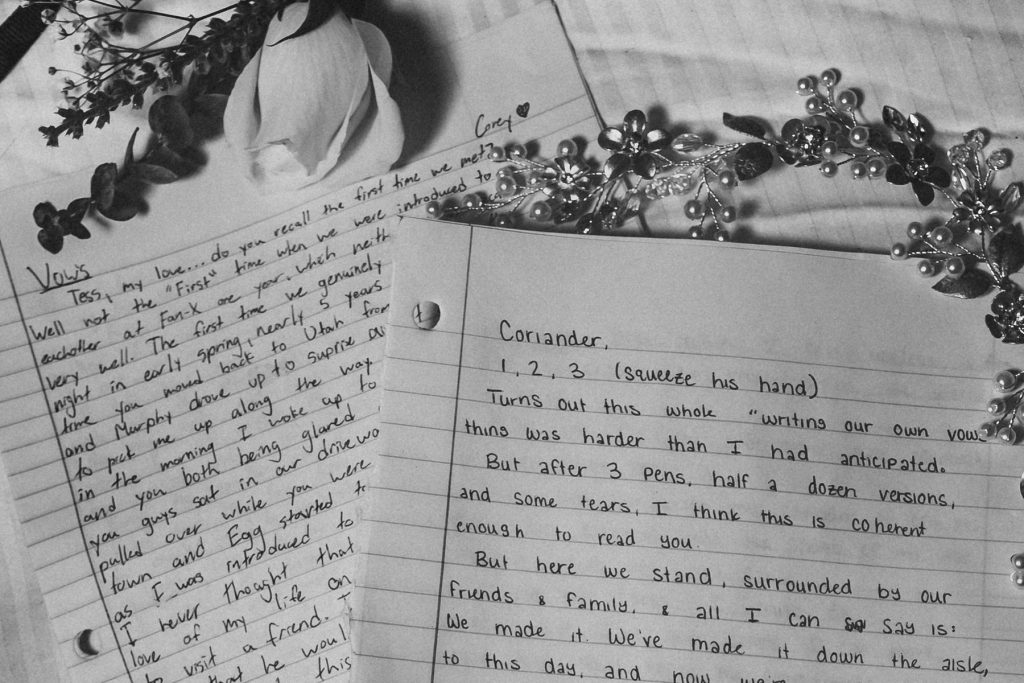 Corey
Vows
Tess, my love... do you recall the first time we met?
Well not the "First" time when we were introduced to
eachother at Fan-X one year, which neith
very well. The first time we genuinely
night in early spring, nearly 5 years
time you moved back to Utah from
and Murphy drove up to suprise
to pick me up along the way
in the morning I woke up to
and you both being glared
you guys sat in our drivewa
pulled over while you were
town and Egg started t
as I was introduced to
I never thought that
love of my life on
to visit a friend. I
that he woul
this
Coriander,
1, 2, 3 (squeeze his hand)
Turns out this whole "writing our own vows
thing was harder than I had anticipated.
But after 3 pens, half a dozen versions,
and some tears, I think this is coherent
enough to read you
But here we stand, surrounded by our
friends & family, & all I can say is:
We made it. We've made it down the aisle,
to this day, and now we're